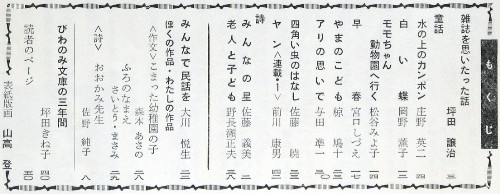 もくじ
雑誌を思いたった話 坪田譲治 二
童話
水の上のカンポン 庄野英二 四
白い蝶 岡野薫子 八
モモちゃん動物園へ行く 松谷みよ子 一四
早春 宮口しづえ 一七
やまのこども 椋鳩十 二〇
アリの思いで 与田凖一
四角い虫のはなし 佐藤暁
ヤン〈連載・1〉 前川康男
詩
みんなの星 佐藤義美
老人と子ども 野長瀬正夫
みんなで民話を 大川悦生
ぼくの作品・わたしの作品
〈作文〉こまった幼稚園の子 森本あさの
ふろのなまえ さいとう・まさみ
〈詩〉おおかみ先生 佐野純子 八
びわのみ文庫の三年間 坪田きね子
読者のページ
表紙版画 山高登